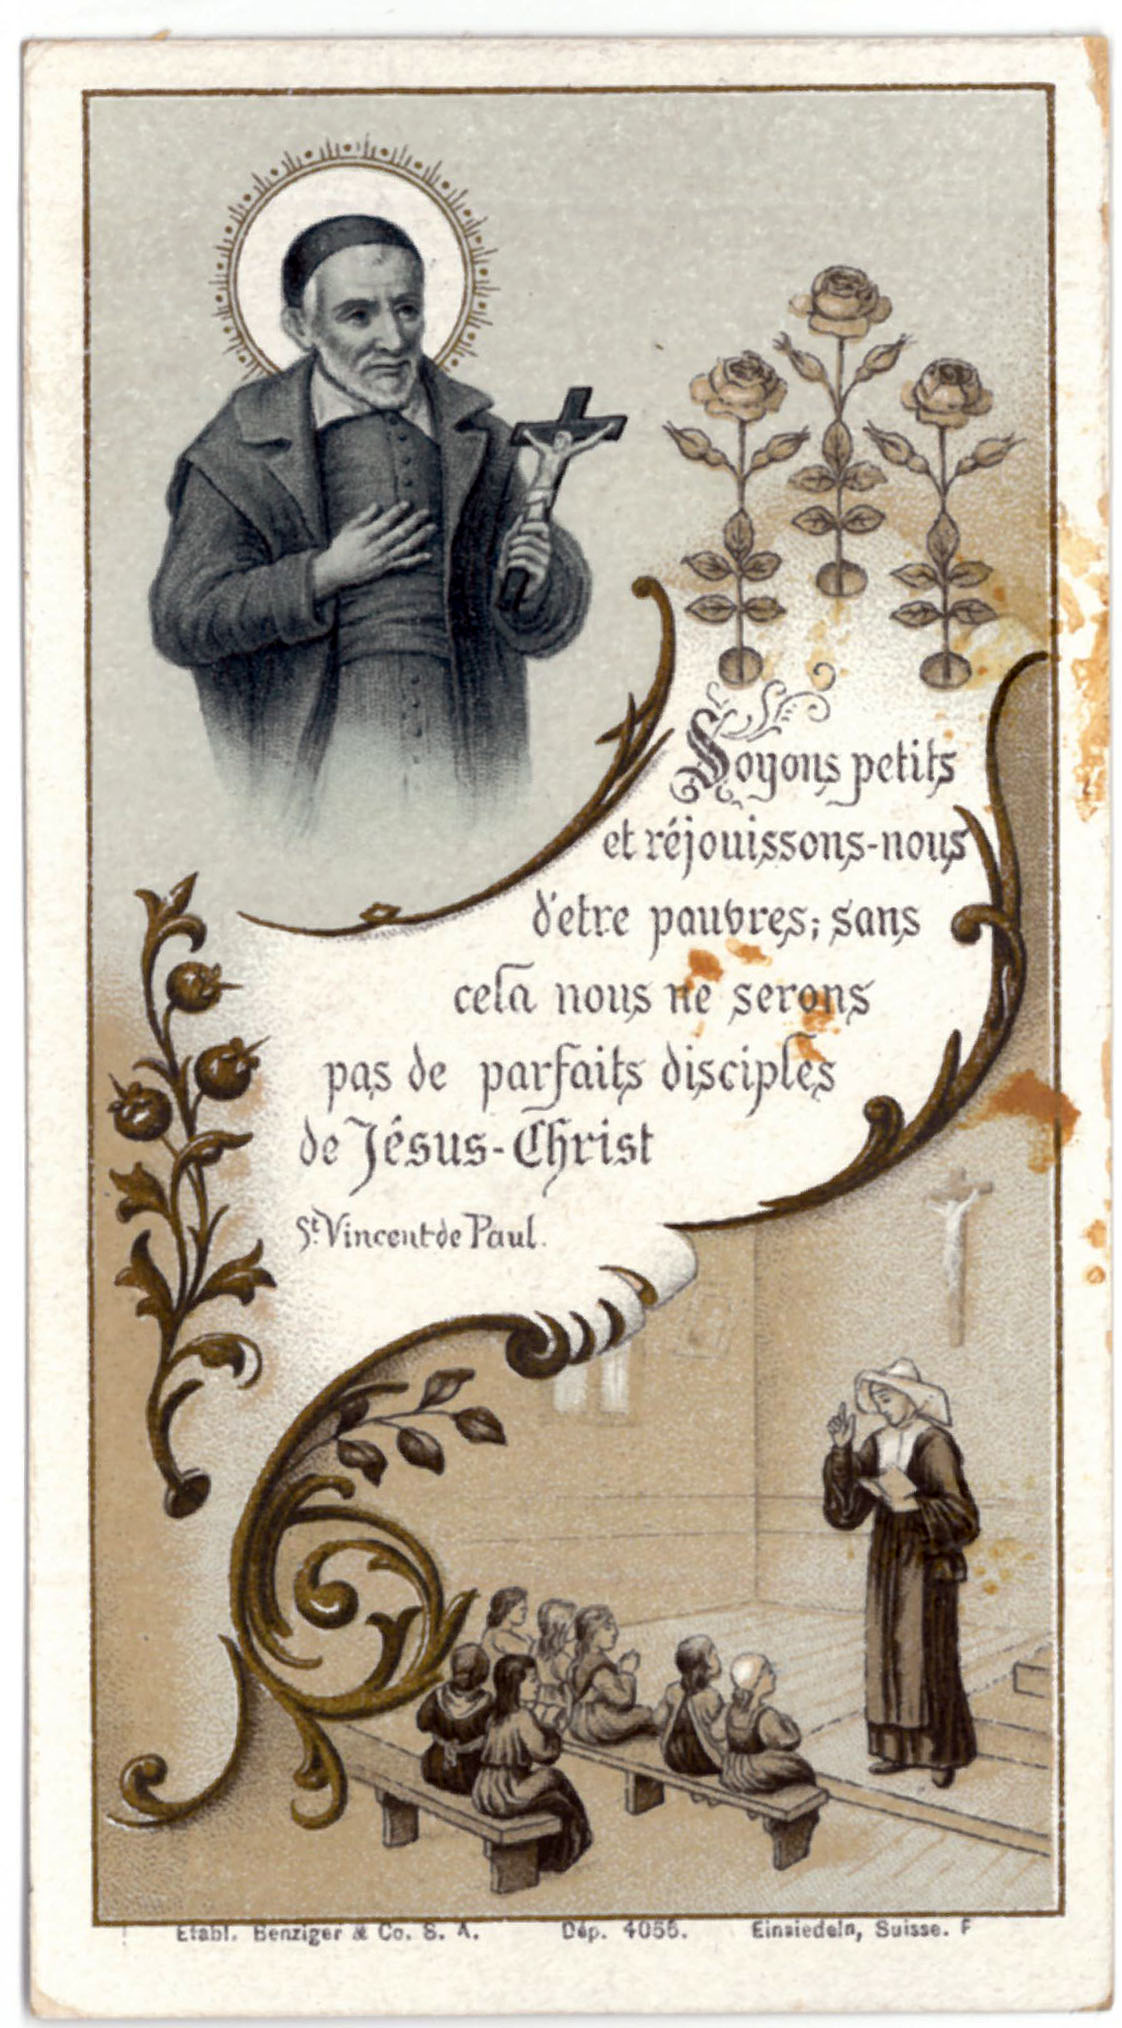 Soyons petits
et réjouissons-nous
d'etre pauvres; sans
cela nous ne serons
pas de parfaits disciples
de Jésus-Christ
St. Vincent de Paul.
Etabl. Benziger & Co. S. A. Dép. 4055. Einsiedeln, Suisse. F